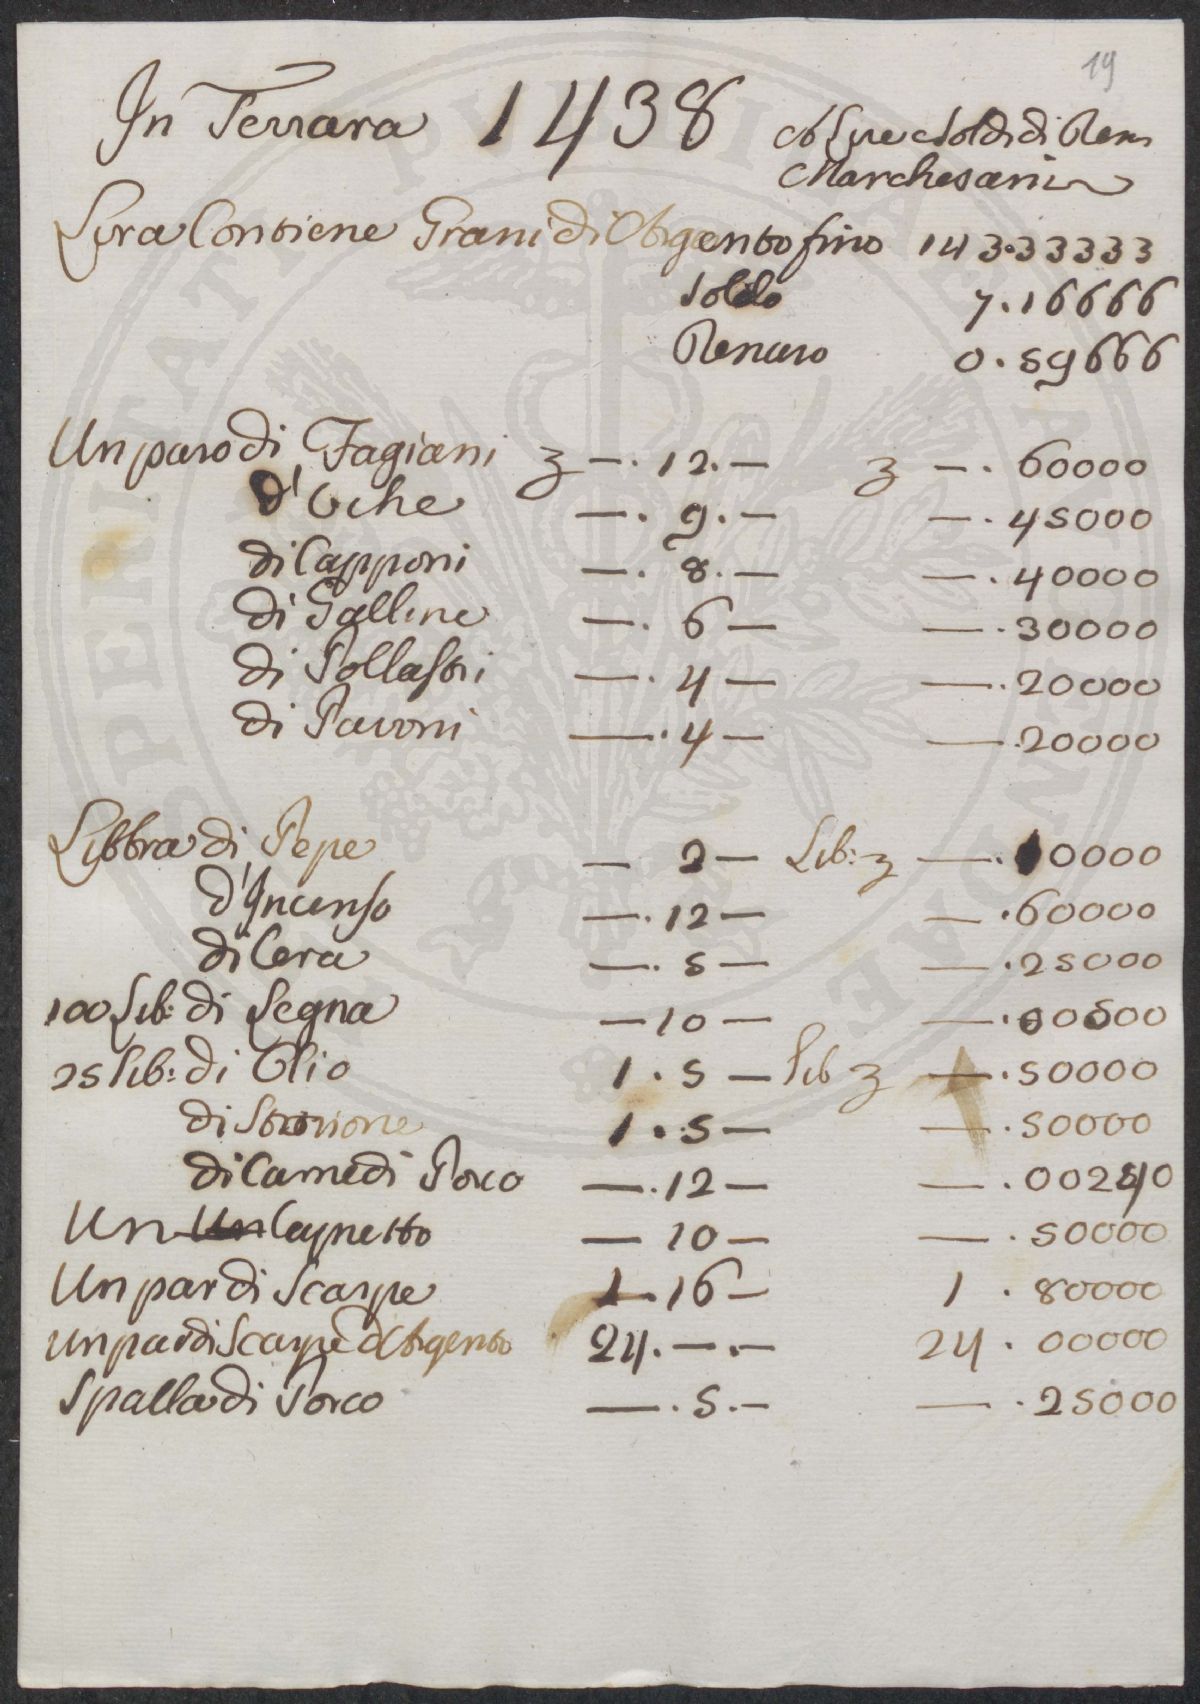 19
In Ferrara 1438
a Lire e Soldi di Den:
Marchesani
Lira Contiene Grani di Argento fino 143.33333
Soldo 7.16666
Denaro 0.59666
Un paro di Fagiani £ —. 12. — £ —. 60000
d'Oche —. 9. — —. 45000
di Capponi —. 8. — —. 40000
di Galline —. 6 — —. 30000
di Pollastri —. 4 — —. 20000
di Pavoni —. 4 — —. 20000
Libbra di Pepe — 2 — Lib: £ —. 10000
d'Incenso —. 12 — —. 60000
di Cera —. 5 — —. 25000
100 Lib: di Legna — 10 — —. 00500
25 Lib: di Olio 1. 5 — Lib £ —. 50000
di Storione 1. 5 — —. 50000
di Carne di Porco —. 12 — —. 00240
Un Un Capretto — 10 — —. 50000
Un par di Scarpe 1. 16 — 1. 80000
Un par di Scarpe d'Argento 24. —. — 24. 00000
Spalla di Porco —. 5. — —. 25000
PVBLICAE
PROSPERITATI